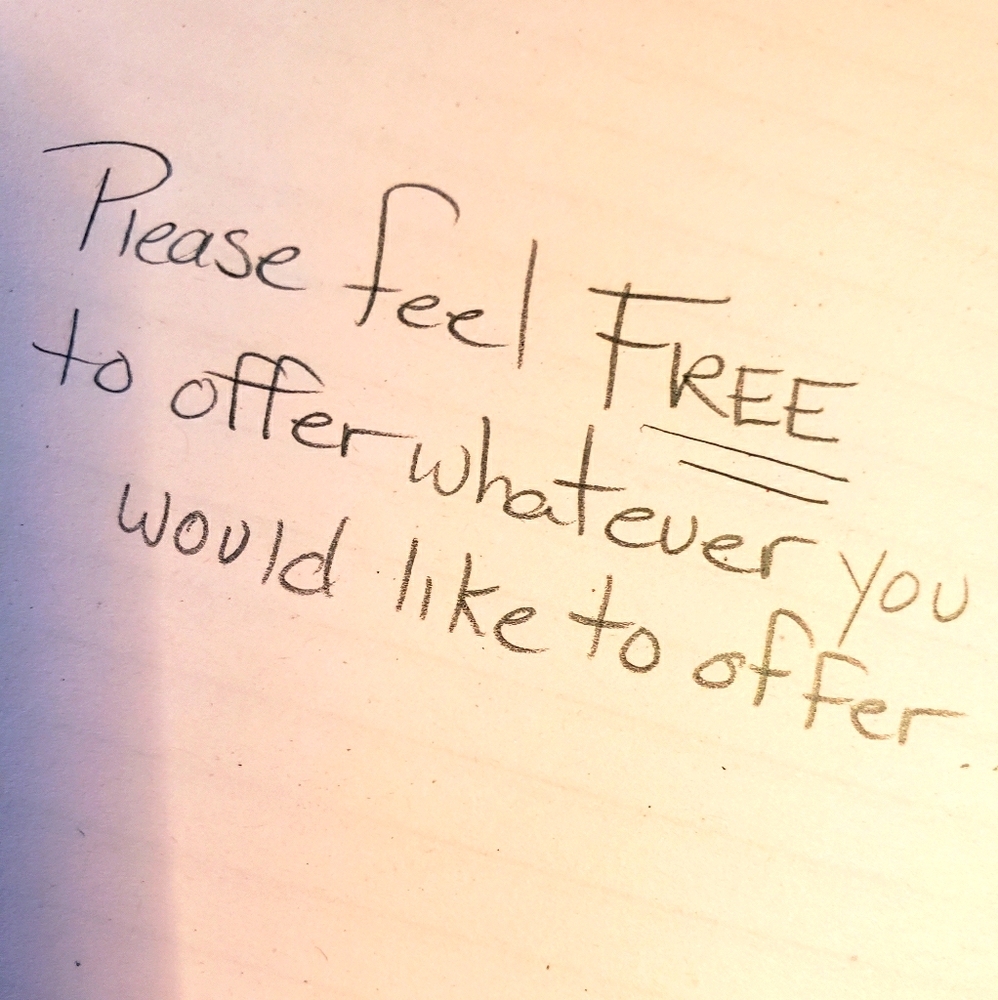 Please feel FREE
to offer whatever you
would like to offer..